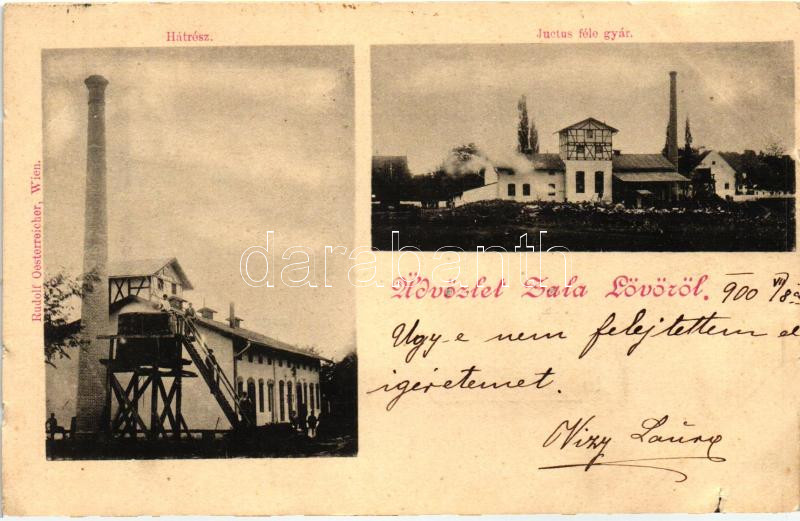 Hátrész.
Juctus féle gyár.
Rudolf Oesterreicher, Wien.
darabanth
Üdvözlet Zala Lövöröl.
900 VII/8
Ugy-e nem felejtettem el
igéretemet.
Vizy Laura